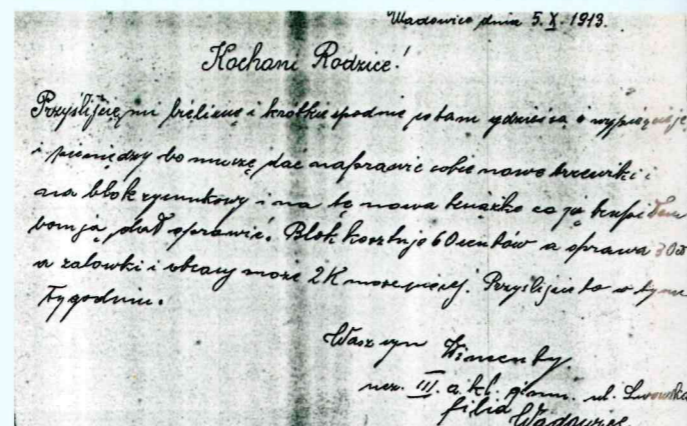 Wadowice dnia 5.X.1913.
Kochani Rodzice!
Przyślijcie mi bieliznę i krótkie spodnie
i pieniędzy bo muszę dac naprawić sobie nowe trzewiki i
na blok rysunkowy i na tę nowa książkę co ją kupiłem
bom ją dał oprawić. Blok kosztuje 60 centów a oprawa 30
a zalowki i obcasy moze 2K moze więcej. Przyślijcie to w tym
tygodniu.
Wasz syn Wincenty
ucz. III. a kl. gimn. ul. Lwowska
filia Wadowice